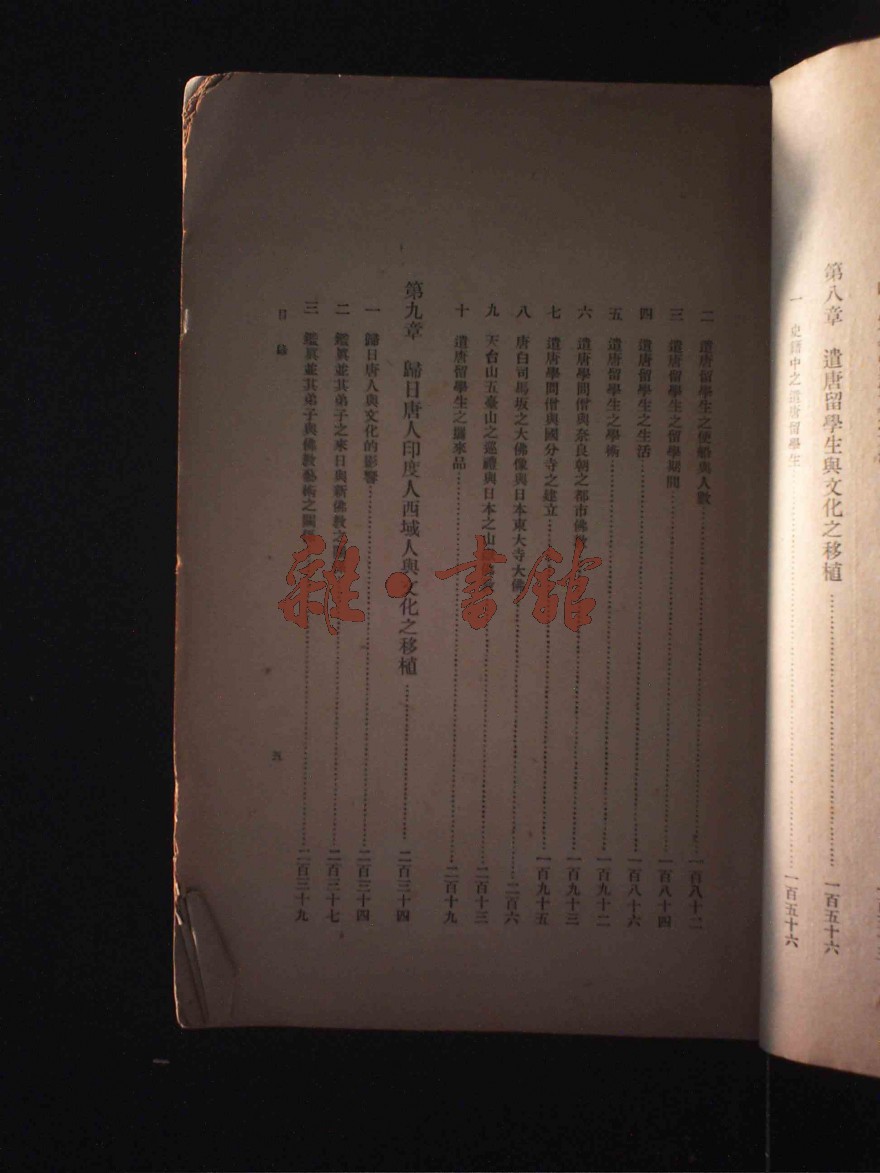 第八章　遣唐留學生與文化之移植……一百五十六
一　史籍中之遣唐留學生……一百五十六
二　遣唐留學生之使船與人數……一百八十二
三　遣唐留學生之留學期間……一百八十四
四　遣唐留學生之生活……一百八十六
五　遣唐留學生之學術……一百九十二
六　遣唐學問僧與奈良朝之都市佛教……一百九十三
七　遣唐學問僧與國分寺之建立……一百九十五
八　唐白司馬坂之大佛像與日本東大寺大佛……二百六
九　天台山五臺山之巡禮與日本之山……二百十三
十　遣唐留學生之齎來品……二百十九
第九章　歸日唐人印度人西域人與文化之移植……二百三十四
一　歸日唐人與文化的影響……二百三十四
二　鑑眞並其弟子之來日與新佛教之……二百三十七
三　鑑眞並其弟子與佛教藝術之關係……二百三十九
目錄
五
雜·書館